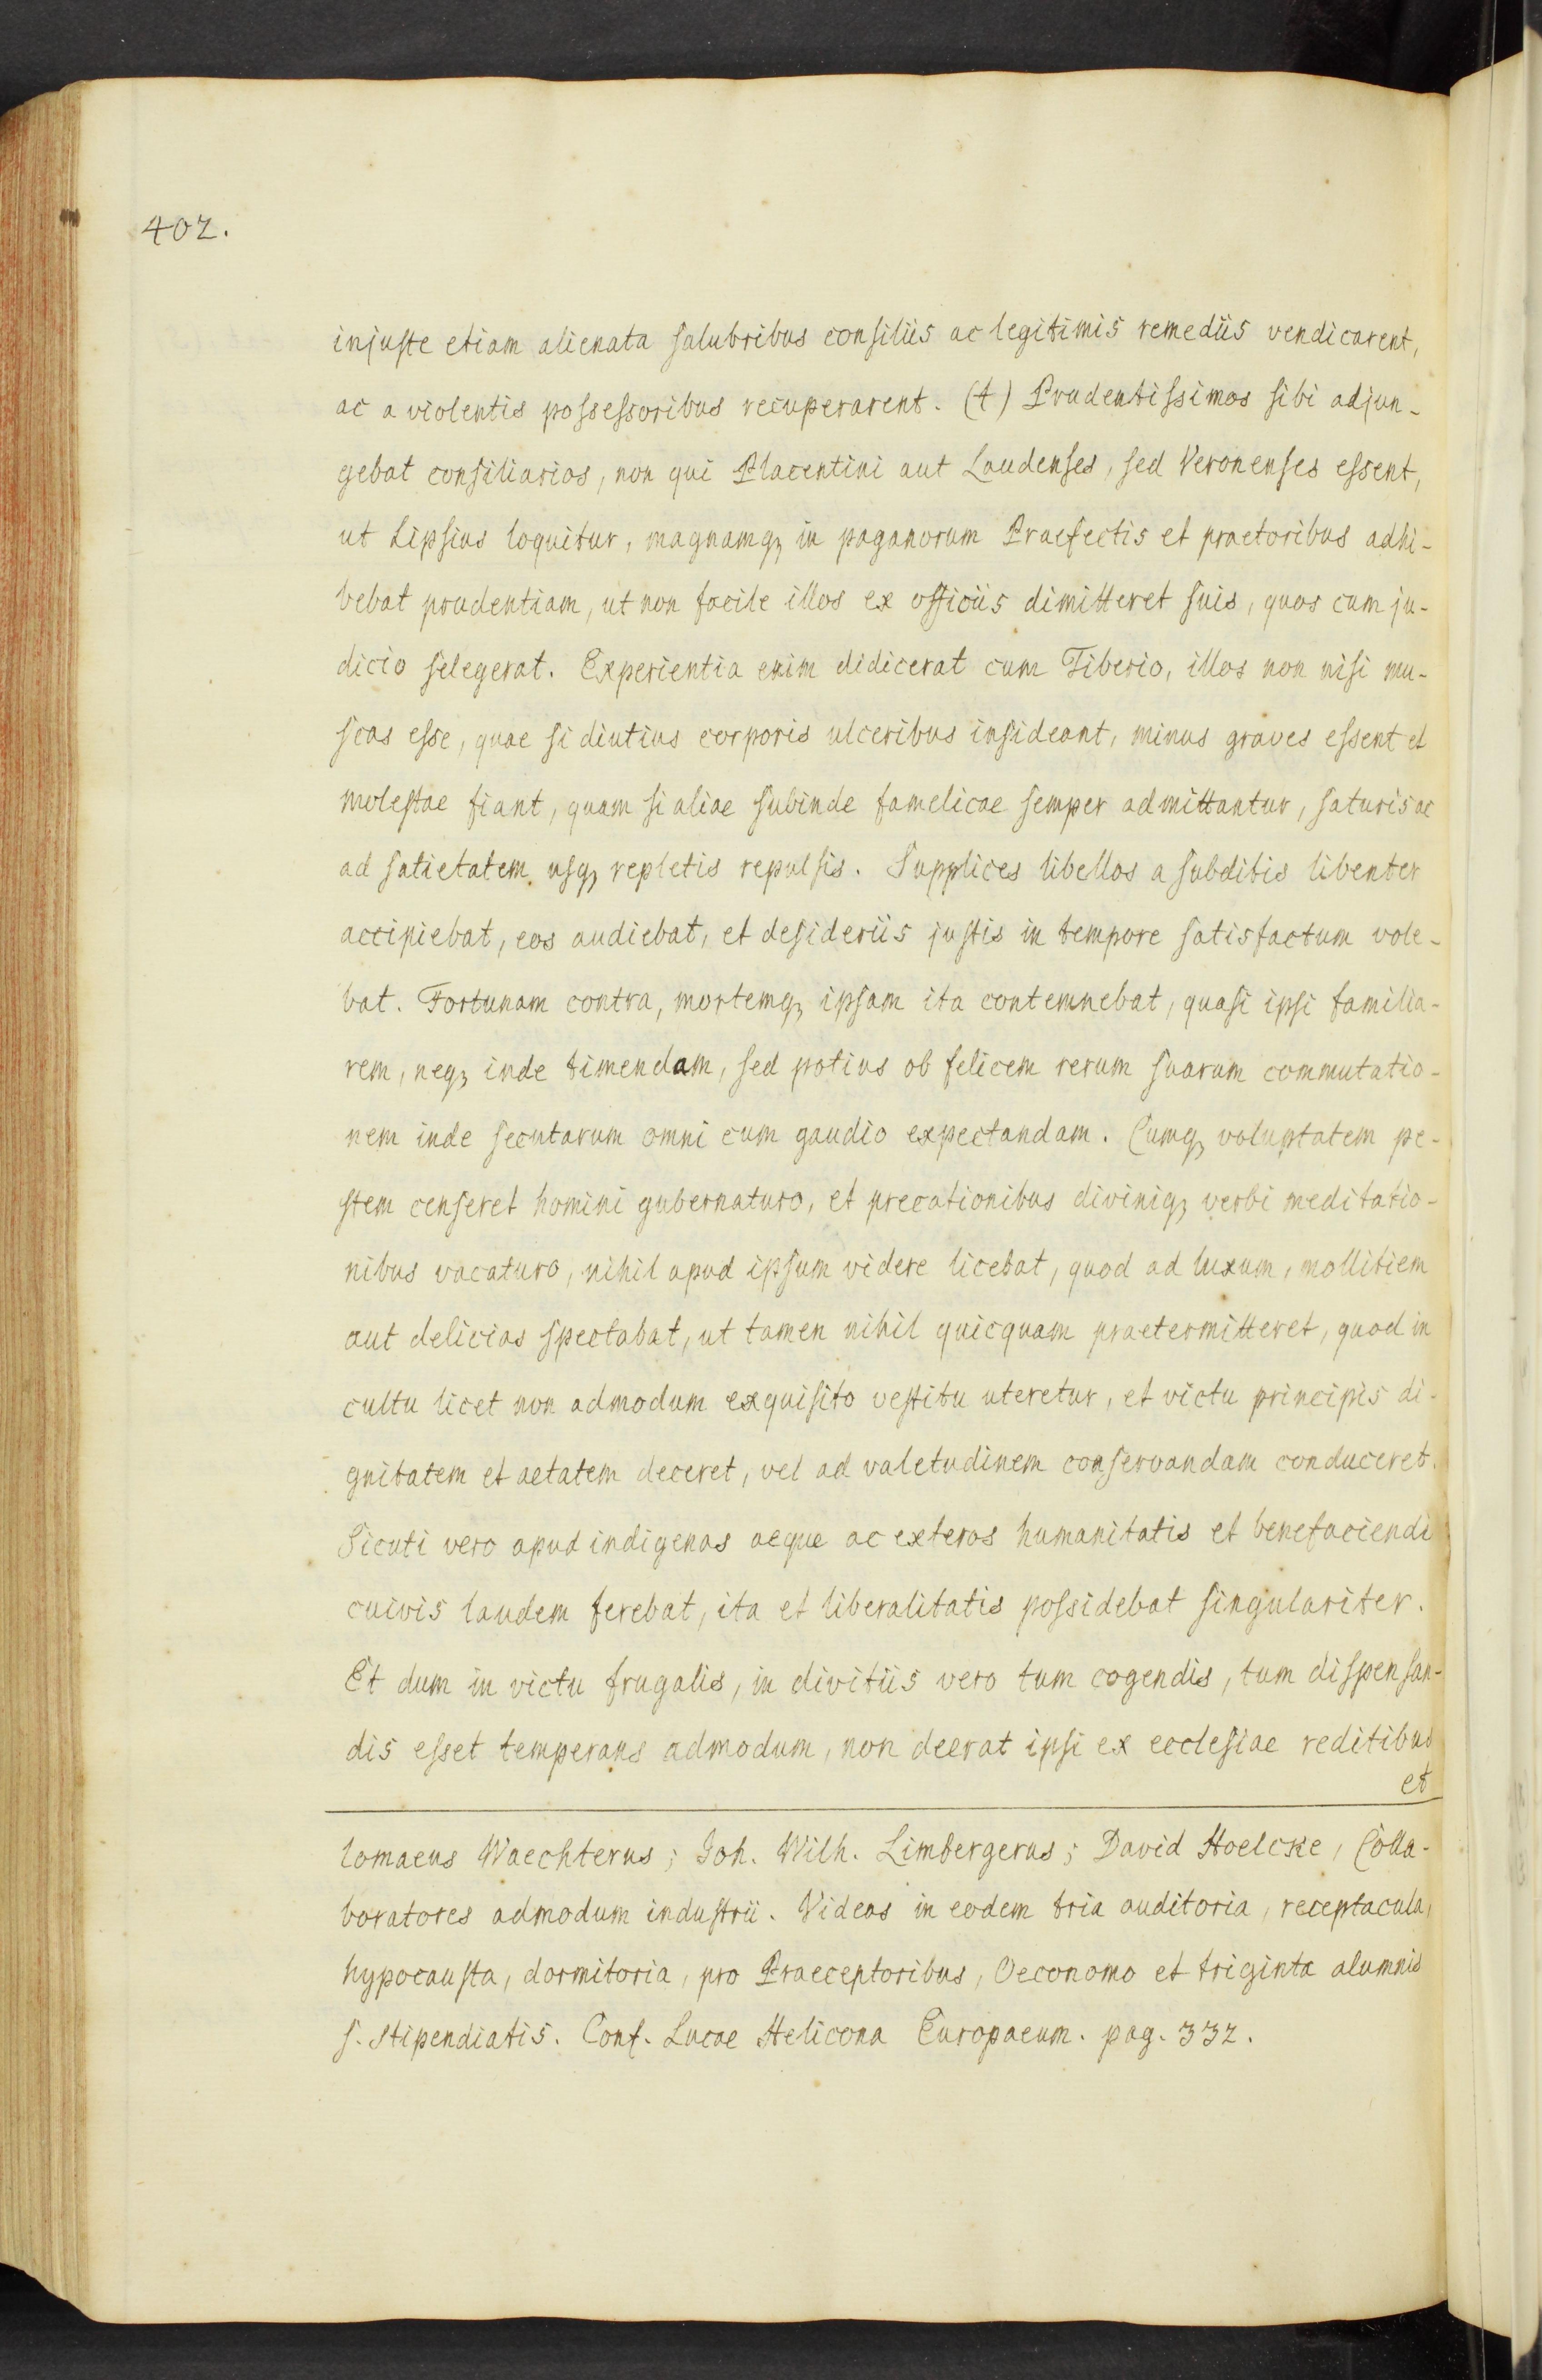 402.
injuste etiam alienata salubribus consiliis ac legitimis remediis vendicarent,
ac a violentis possessoribus recuperarent. (t) Prudentissimos sibi adjun-
gebat consiliarios, non qui Placentini aut Laudenses, sed Veronenses essent,
ut Lipsius loquitur, magnamq; in paganorum Praefectis et praetoribus adhi-
bebat prudentiam, ut non facile illos ex officiis dimitteret suis, quos cum ju-
dicio selegerat. Experientia enim didicerat cum Tiberio, illos non nisi mu-
scas esse, quae si diutius corporis ulceribus insideant, minus graves essent et
molestae fiant, quam si aliae subinde famelicae semper admittantur, saturis ac
ad satietatem usq; repletis repulsis. Supplices libellos a subditis libenter
accipiebat, eos audiebat, et desideriis justis in tempore satisfactum vole-
bat. Fortunam contra, mortemq; ipsam ita contemnebat, quasi ipsi familia-
rem, neq; inde timendam, sed potius ob felicem rerum suarum commutatio-
nem inde secutarum omni cum gaudio expectandam. Cumq; voluptatem pe-
stem censeret homini gubernaturo, et precationibus diviniq; verbi meditatio-
nibus vacaturo, nihil apud ipsum videre licebat, quod ad luxum, mollitiem
aut delicias spectabat, ut tamen nihil quicquam praetermitteret, quod in
cultu licet non admodum exquisito vestitu uteretur, et victu principis di-
gnitatem et aetatem deceret, vel ad valetudinem conservandam conduceret.
Sicuti vero apud indigenas aeque ac exteros humanitatis et benefaciendi
cuivis laudem ferebat, ita et liberalitatis possidebat singulariter.
Et dum in victu frugalis, in divitiis vero tum cogendis, tum dispensan-
dis esset temperans admodum, non deerat ipsi ex ecclesiae reditibus
et
lomaeus Waechterus; Joh. Wilh. Limbergerus; David Hoelcke, Colla-
boratores admodum industrii. Videas in eodem tria auditoria, receptacula,
hypocausta, dormitoria, pro Praeceptoribus, Oeconomo et triginta alumnis
s. stipendiatis. Conf. Lucae Helicona Europaeum. pag. 332.